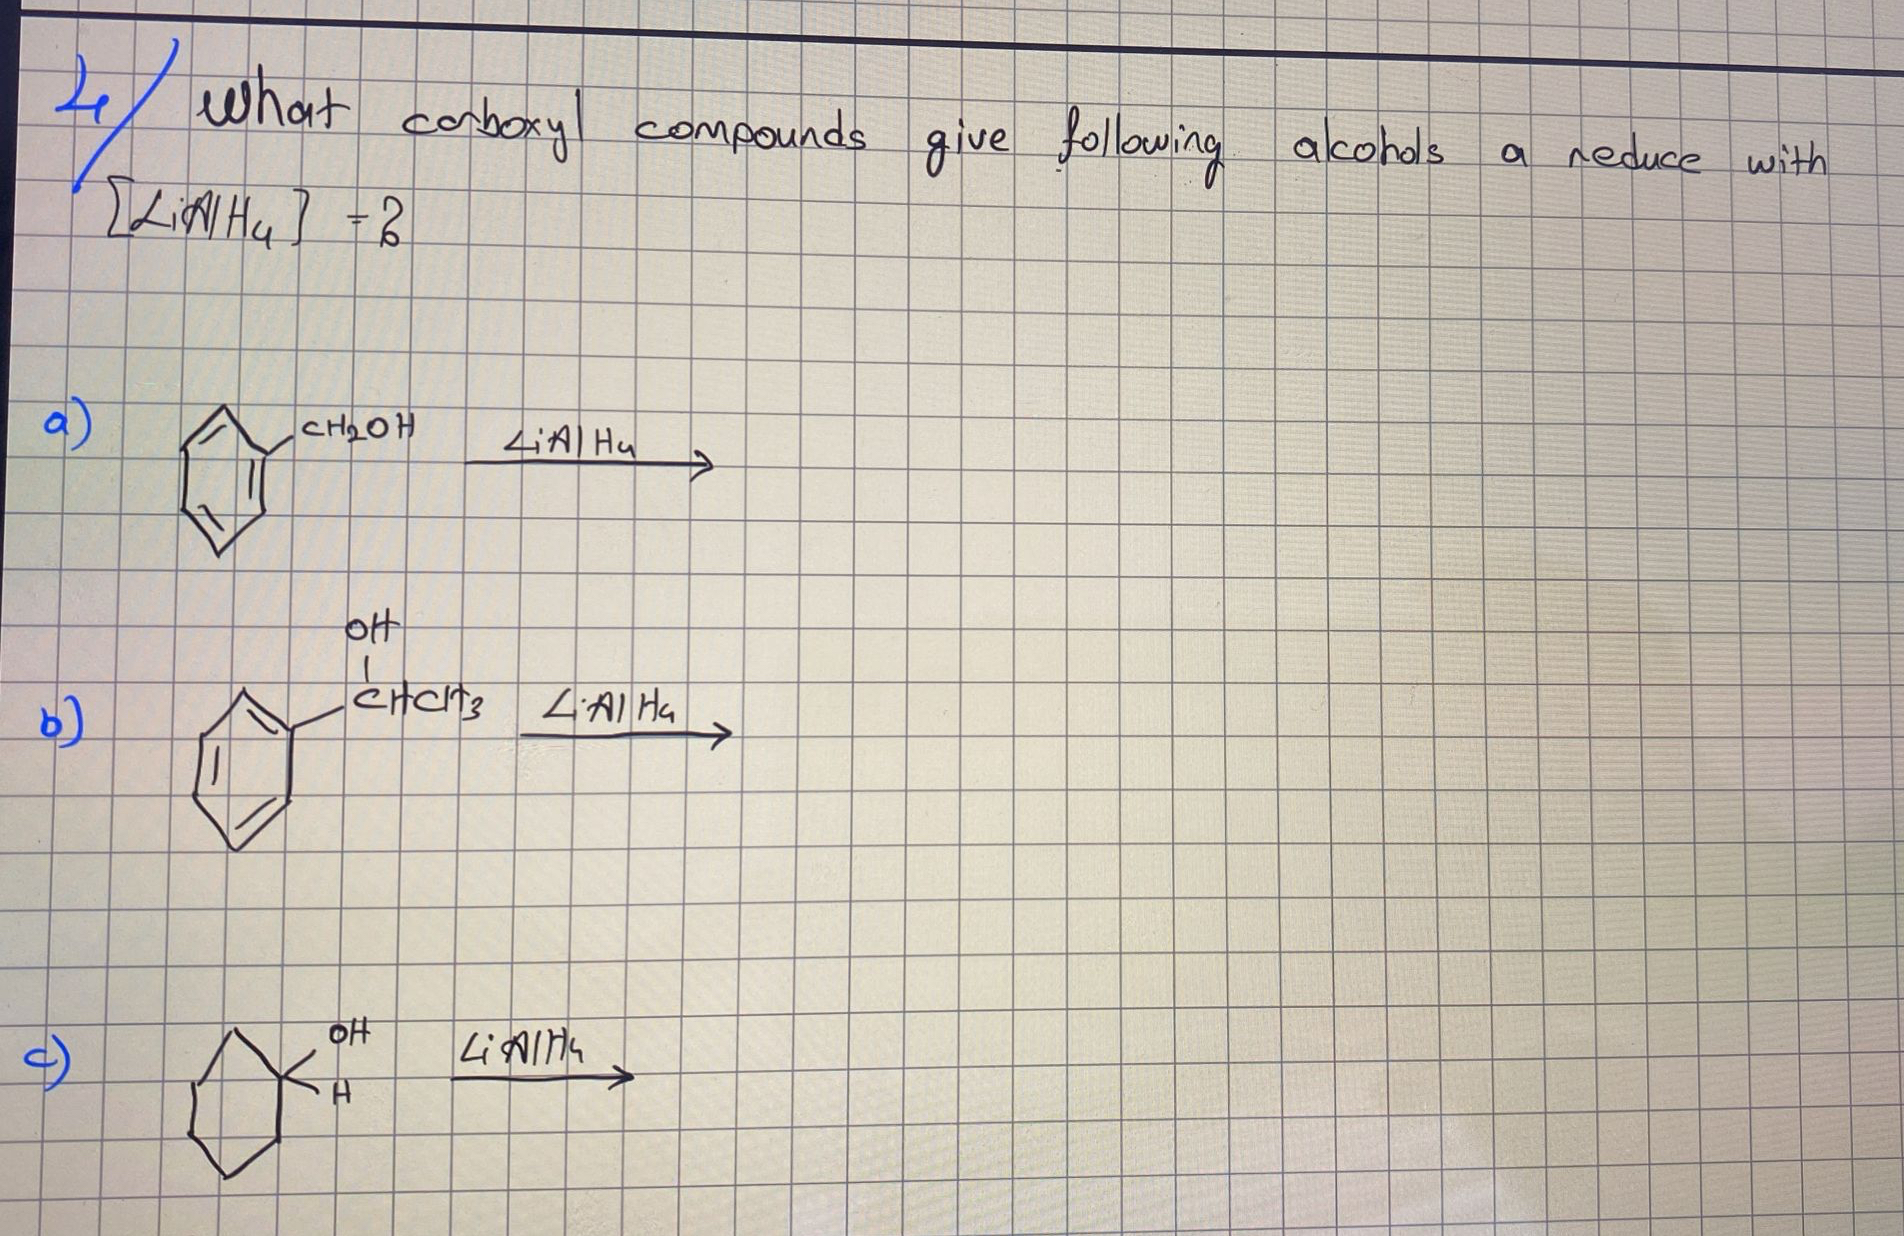 4/ What carboxyl compounds give following alcohols a reduce with
[LiAlH4] =?
a) CH2OH LiAlH4
OH
b) CHCH3 LiAlH4
c) OH LiAlH4
H